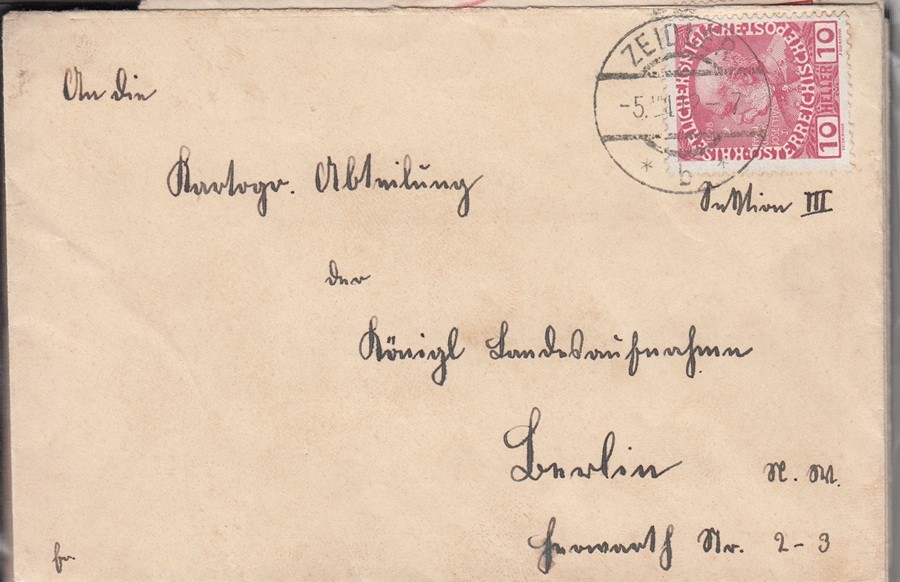 An die
Kartogr. Abteilung Sektion III
der
Königl Landesaufnahme
Berlin N. W.
Herwarth Str. 2-3
fr.
ZEIDLER
-5. 7
* b *
KAISERLICHE KÖNIGLICHE ÖSTERREICHISCHE POST
10 HELLER 10